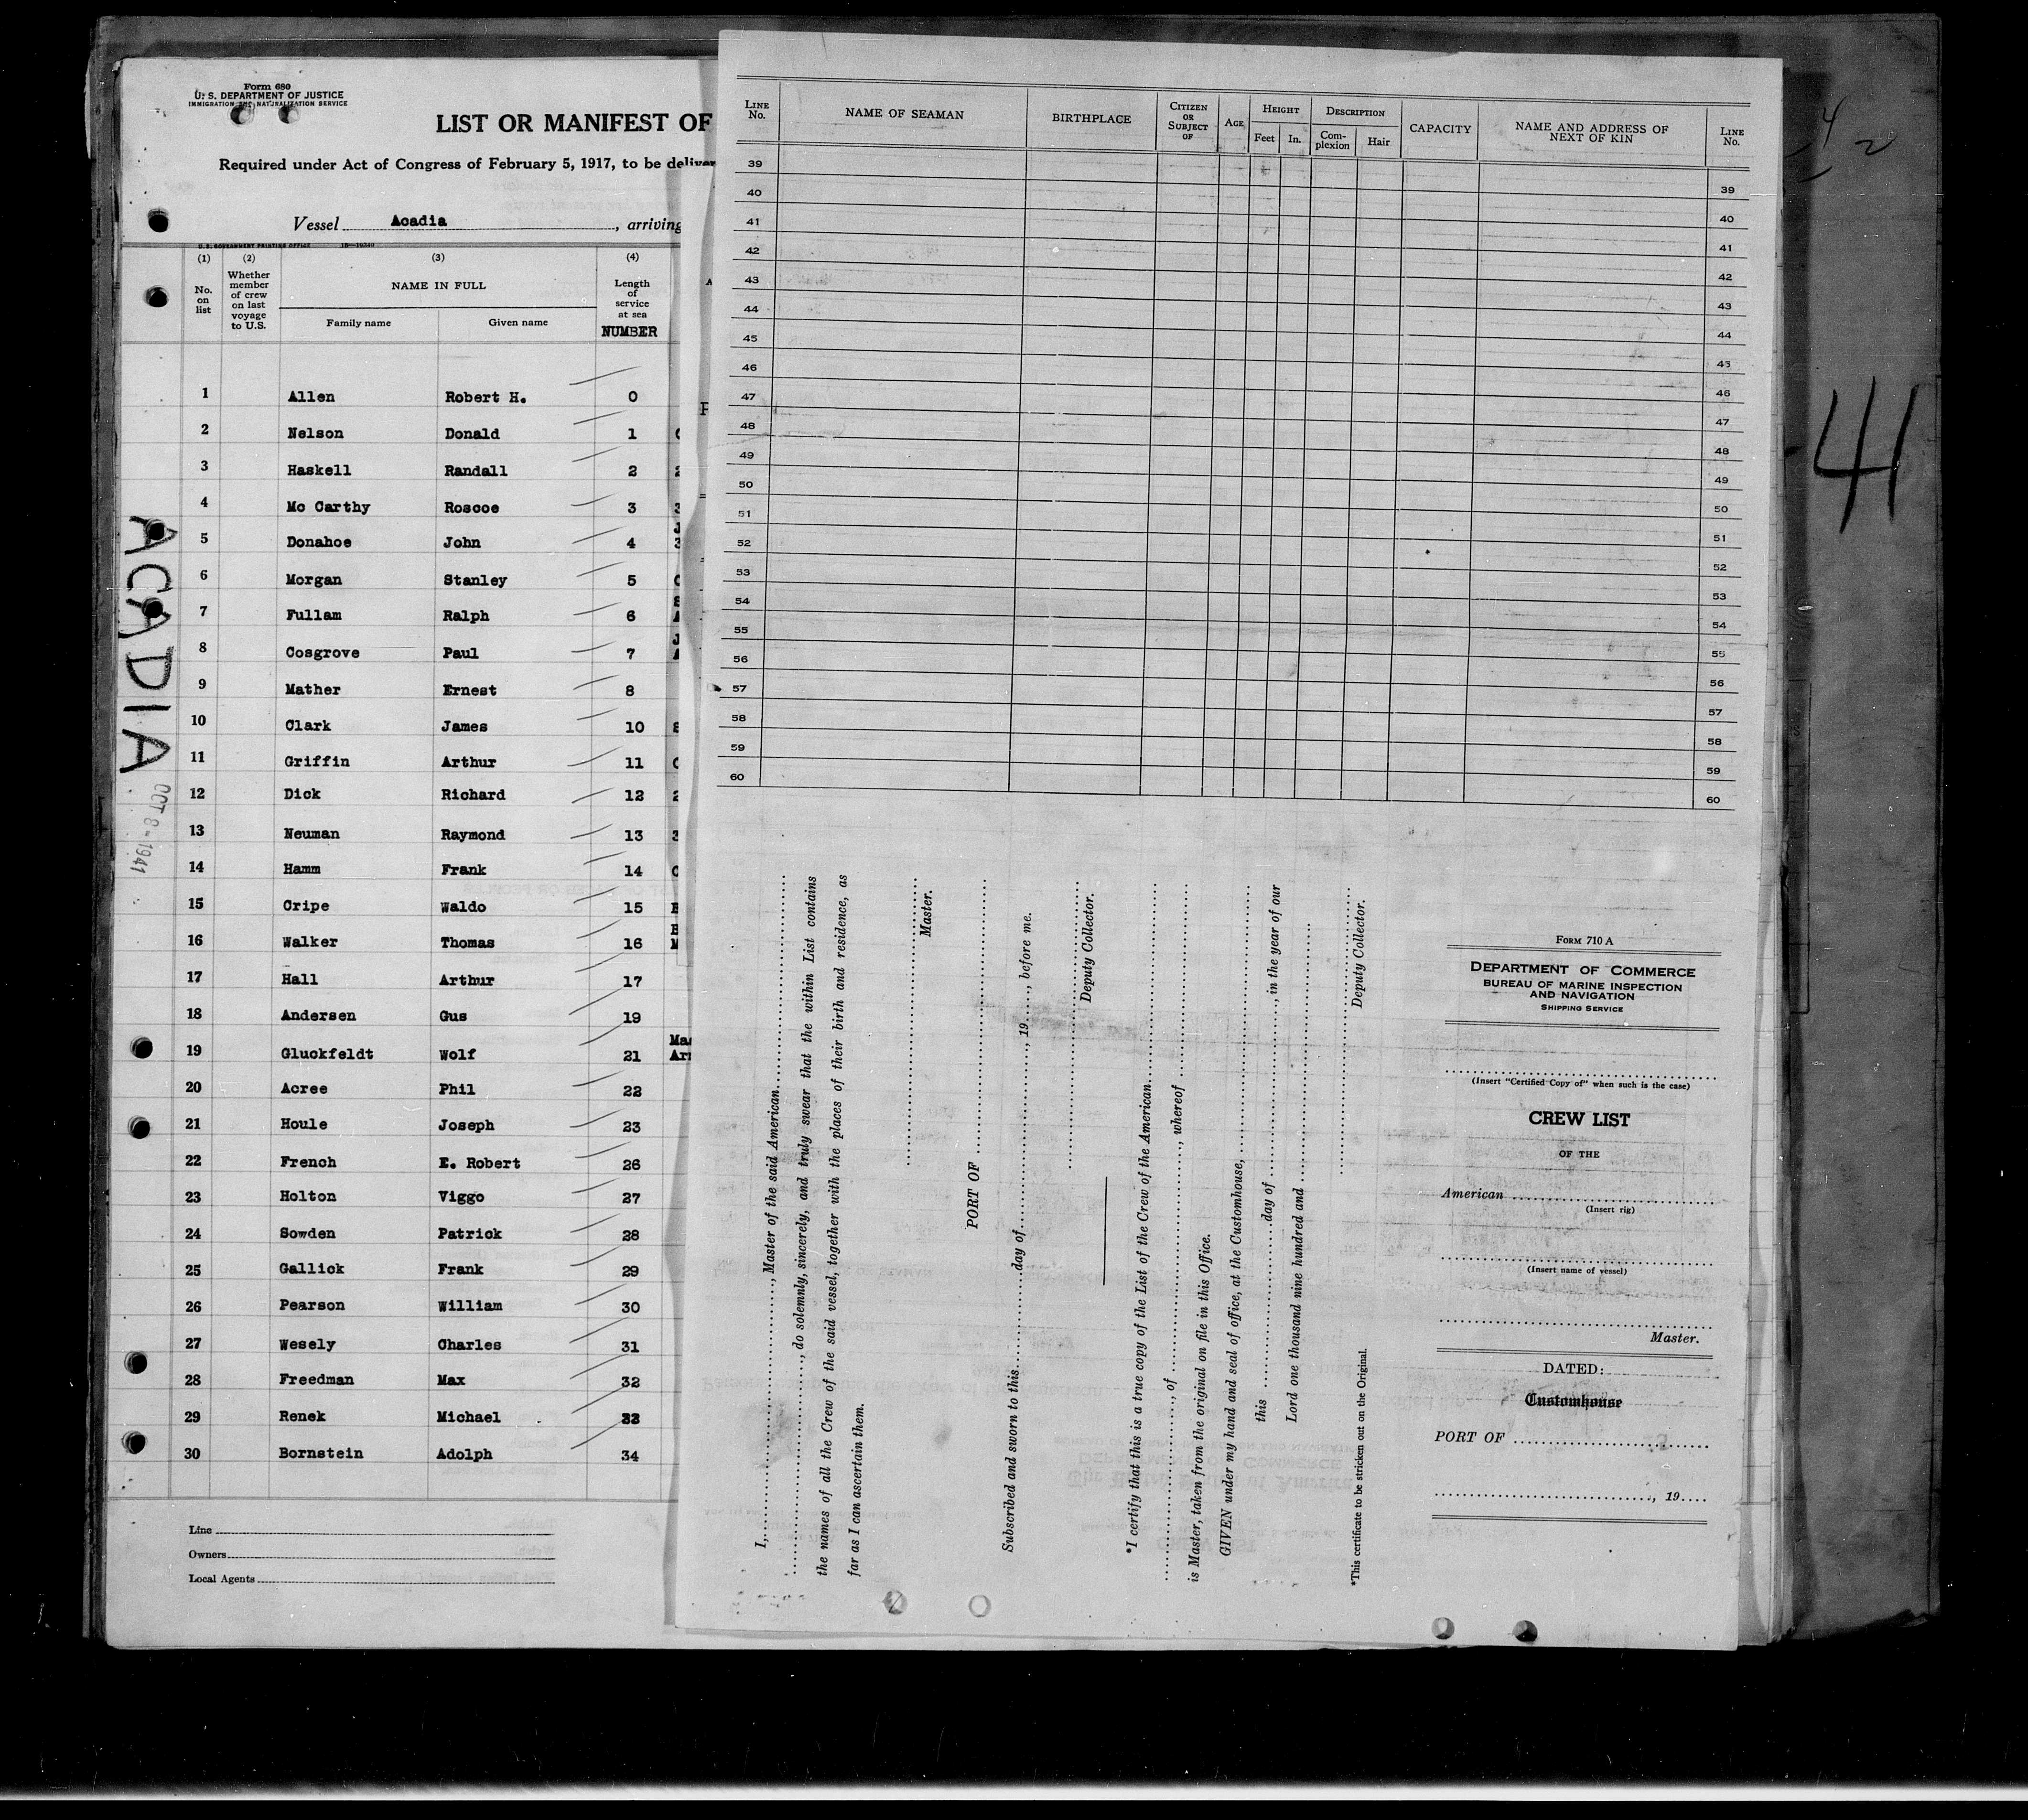 Form 680
U. S. DEPARTMENT OF JUSTICE
IMMIGRATION AND NATURALIZATION SERVICE
LIST OR MANIFEST OF
Required under Act of Congress of February 5, 1917, to be deliver
Vessel Acadia, arriving
U.S. GOVERNMENT PRINTING OFFICE 16—10349
(1) (2) (3) (4)
No. on list
Whether member of crew on last voyage to U.S.
NAME IN FULL
Family name Given name
Length of service at sea
NUMBER
1 Allen Robert H. 0
2 Nelson Donald 1
3 Haskell Randall 2
4 Mc Carthy Roscoe 3
5 Donahoe John 4
6 Morgan Stanley 5
7 Fullam Ralph 6
8 Cosgrove Paul 7
9 Mather Ernest 8
10 Clark James 10
11 Griffin Arthur 11
12 Dick Richard 12
13 Neuman Raymond 13
14 Hamm Frank 14
15 Cripe Waldo 15
16 Walker Thomas 16
17 Hall Arthur 17
18 Andersen Gus 19
19 Gluckfeldt Wolf 21
20 Acree Phil 22
21 Houle Joseph 23
22 French E. Robert 26
23 Holton Viggo 27
24 Sowden Patrick 28
25 Gallick Frank 29
26 Pearson William 30
27 Wesely Charles 31
28 Freedman Max 32
29 Renek Michael 33
30 Bornstein Adolph 34
Line
Owners
Local Agents
ACADIA
OCT 8 - 1941
LINE No. NAME OF SEAMAN BIRTHPLACE CITIZEN OR SUBJECT OF AGE HEIGHT DESCRIPTION CAPACITY NAME AND ADDRESS OF NEXT OF KIN LINE No.
Feet In. Complexion Hair
39 39
40 40
41 41
42 42
43 43
44 44
45 45
46 46
47 47
48 48
49 49
50 50
51 51
52 52
53 53
54 54
55 55
56 56
57 57
58 58
59 59
60 60
I, ........, Master of the said American........
........, do solemnly, sincerely, and truly swear that the within List contains
the names of all the Crew of the said vessel, together with the places of their birth and residence, as
far as I can ascertain them.
Master.
PORT OF ........
Subscribed and sworn to this........day of........, 19......, before me.
Deputy Collector.
*I certify that this is a true copy of the List of the Crew of the American........
........, of ........, whereof ........
is Master, taken from the original on file in this Office.
GIVEN under my hand and seal of office, at the Customhouse, ........
this ........day of ........, in the year of our
Lord one thousand nine hundred and ........
Deputy Collector.
*This certificate to be stricken out on the Original.
FORM 710 A
DEPARTMENT OF COMMERCE
BUREAU OF MARINE INSPECTION
AND NAVIGATION
SHIPPING SERVICE
(Insert "Certified Copy of" when such is the case)
CREW LIST
OF THE
American ........
(Insert rig)
(Insert name of vessel)
Master.
DATED:
Customhouse
PORT OF ........
........, 19....
4
2
41